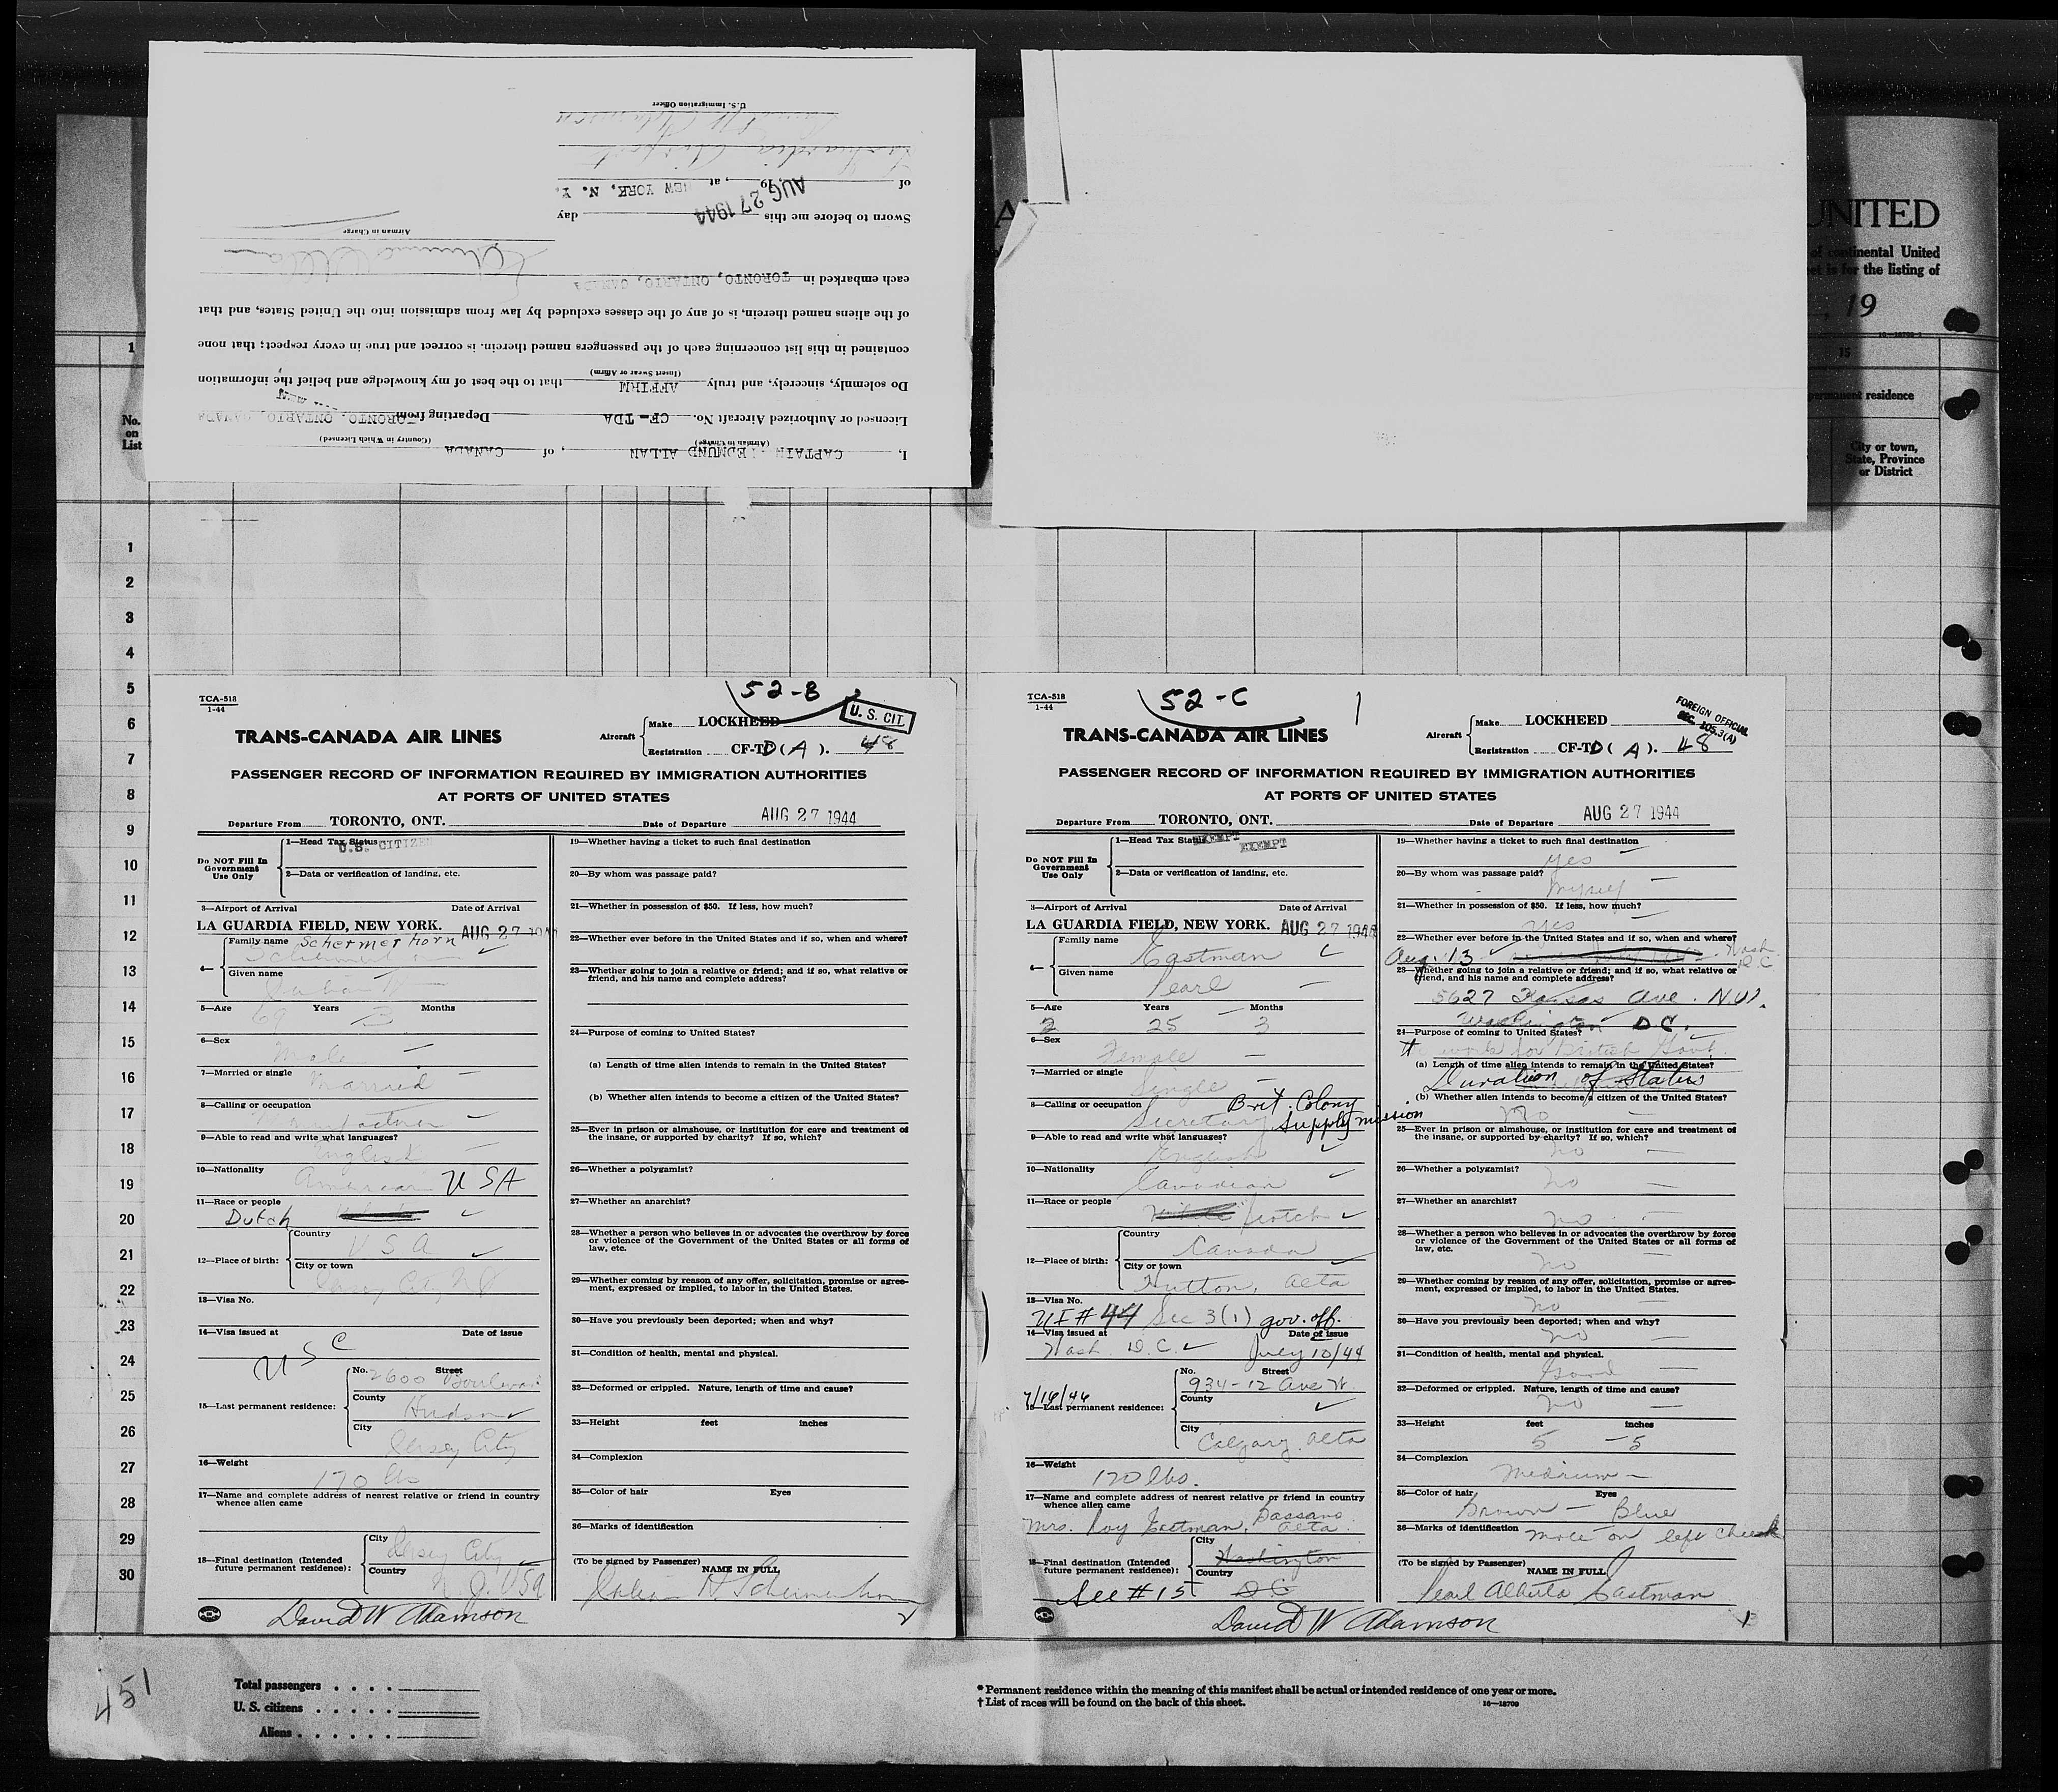 U.S. Immigration Officer
of AUG 27 1944, 19 , at NEW YORK, N. Y.
Sworn to before me this day
Airman in Charge
each embarked in TORONTO, ONTARIO, CANADA
of the aliens named therein, is of any of the classes excluded by law from admission into the United States, and that
contained in this list concerning each of the passengers named therein. is correct and true in every respect; that none
(Insert Swear or Affirm)
Do solemnly, sincerely, and truly AFFIRM that to the best of my knowledge and belief the information
Licensed or Authorized Aircraft No. CF-TDA Departing from TORONTO, ONTARIO, CANADA
(Airman in Charge) (Country in Which Licensed)
I, CAPTAIN EDMUND ALLAN, of CANADA
UNITED
of continental United
is for the listing of
, 19
15
permanent residence
City or town,
State, Province
or District
No.
on
List
1
1
2
3
4
5
6
7
8
9
10
11
12
13
14
15
16
17
18
19
20
21
22
23
24
25
26
27
28
29
30
TCA-518
1-44
52-B
U. S. CIT.
TRANS-CANADA AIR LINES
Aircraft Make LOCKHEED
Registration CF-TD (A). 48
PASSENGER RECORD OF INFORMATION REQUIRED BY IMMIGRATION AUTHORITIES
AT PORTS OF UNITED STATES
Departure From TORONTO, ONT. Date of Departure AUG 27 1944
Do NOT Fill In Government Use Only
1—Head Tax Status U.S. CITIZEN
2—Data or verification of landing, etc.
3—Airport of Arrival Date of Arrival
LA GUARDIA FIELD, NEW YORK. AUG 27 1944
4— Family name Schermerhorn
Given name
5—Age Years Months
69
6—Sex
Male
7—Married or single
Married
8—Calling or occupation
9—Able to read and write what languages?
English
10—Nationality
American USA
11—Race or people
Dutch
12—Place of birth: Country
USA
City or town
Jersey City NJ
13—Visa No.
14—Visa issued at Date of issue
USC
15—Last permanent residence: No. Street
2600 Boulevard
County
Hudson
City
Jersey City
16—Weight
170 lbs
17—Name and complete address of nearest relative or friend in country
whence alien came
18—Final destination (Intended
future permanent residence): City
Jersey City
Country
N.J. USA
19—Whether having a ticket to such final destination
20—By whom was passage paid?
21—Whether in possession of $50. If less, how much?
22—Whether ever before in the United States and if so, when and where?
23—Whether going to join a relative or friend; and if so, what relative or
friend, and his name and complete address?
24—Purpose of coming to United States?
(a) Length of time alien intends to remain in the United States?
(b) Whether alien intends to become a citizen of the United States?
25—Ever in prison or almshouse, or institution for care and treatment of
the insane, or supported by charity? If so, which?
26—Whether a polygamist?
27—Whether an anarchist?
28—Whether a person who believes in or advocates the overthrow by force
or violence of the Government of the United States or all forms of
law, etc.
29—Whether coming by reason of any offer, solicitation, promise or agree-
ment, expressed or implied, to labor in the United States.
30—Have you previously been deported; when and why?
31—Condition of health, mental and physical.
32—Deformed or crippled. Nature, length of time and cause?
33—Height feet inches
34—Complexion
35—Color of hair Eyes
36—Marks of identification
(To be signed by Passenger) NAME IN FULL
H. Schermerhorn
David W Adamson
TCA-518
1-44
52-C
FOREIGN OFFICIAL
SEC. 105.3(A)
TRANS-CANADA AIR LINES
Aircraft Make LOCKHEED
Registration CF-TD (A). 48
PASSENGER RECORD OF INFORMATION REQUIRED BY IMMIGRATION AUTHORITIES
AT PORTS OF UNITED STATES
Departure From TORONTO, ONT. Date of Departure AUG 27 1944
Do NOT Fill In Government Use Only
1—Head Tax Status EXEMPT EXEMPT
2—Data or verification of landing, etc.
3—Airport of Arrival Date of Arrival
LA GUARDIA FIELD, NEW YORK. AUG 27 1944
4— Family name
Eastman
Given name
Pearl
5—Age Years Months
25 3
6—Sex
Female
7—Married or single
Single
8—Calling or occupation Brit. Colony
Secretary Supply mission
9—Able to read and write what languages?
English
10—Nationality
Canadian
11—Race or people
Scotch
12—Place of birth: Country
Canada
City or town
Hutton, Alta
13—Visa No.
#44 Sec 3(1) gov. off.
14—Visa issued at Date of issue
Wash. D.C. July 10/44
7/16/44
15—Last permanent residence: No. Street
934-12 Ave W
County
City
Calgary, Alta
16—Weight
120 lbs.
17—Name and complete address of nearest relative or friend in country
whence alien came
Mrs. Roy Eastman, Bassano Alta.
18—Final destination (Intended
future permanent residence): City
Washington
Country
D.C.
See #15
19—Whether having a ticket to such final destination
yes
20—By whom was passage paid?
Myself
21—Whether in possession of $50. If less, how much?
yes
22—Whether ever before in the United States and if so, when and where?
Aug. 13 Wash. D.C.
23—Whether going to join a relative or friend; and if so, what relative or
friend, and his name and complete address?
5627 Kansas Ave. N.W.
Washington D.C.
24—Purpose of coming to United States?
To work for British Govt.
(a) Length of time alien intends to remain in the United States?
Duration of Status
(b) Whether alien intends to become a citizen of the United States?
No
25—Ever in prison or almshouse, or institution for care and treatment of
the insane, or supported by charity? If so, which?
no
26—Whether a polygamist?
no
27—Whether an anarchist?
no
28—Whether a person who believes in or advocates the overthrow by force
or violence of the Government of the United States or all forms of
law, etc.
no
29—Whether coming by reason of any offer, solicitation, promise or agree-
ment, expressed or implied, to labor in the United States.
no
30—Have you previously been deported; when and why?
no
31—Condition of health, mental and physical.
Good
32—Deformed or crippled. Nature, length of time and cause?
no
33—Height feet inches
5 - 5
34—Complexion
Medium
35—Color of hair Eyes
Brown — Blue
36—Marks of identification Mole on left cheek
(To be signed by Passenger) NAME IN FULL
Pearl Alberta Eastman
David W Adamson
451
Total passengers . . . .
U. S. citizens . . . . .
Aliens . . . . . .
* Permanent residence within the meaning of this manifest shall be actual or intended residence of one year or more.
† List of races will be found on the back of this sheet. 16—18709